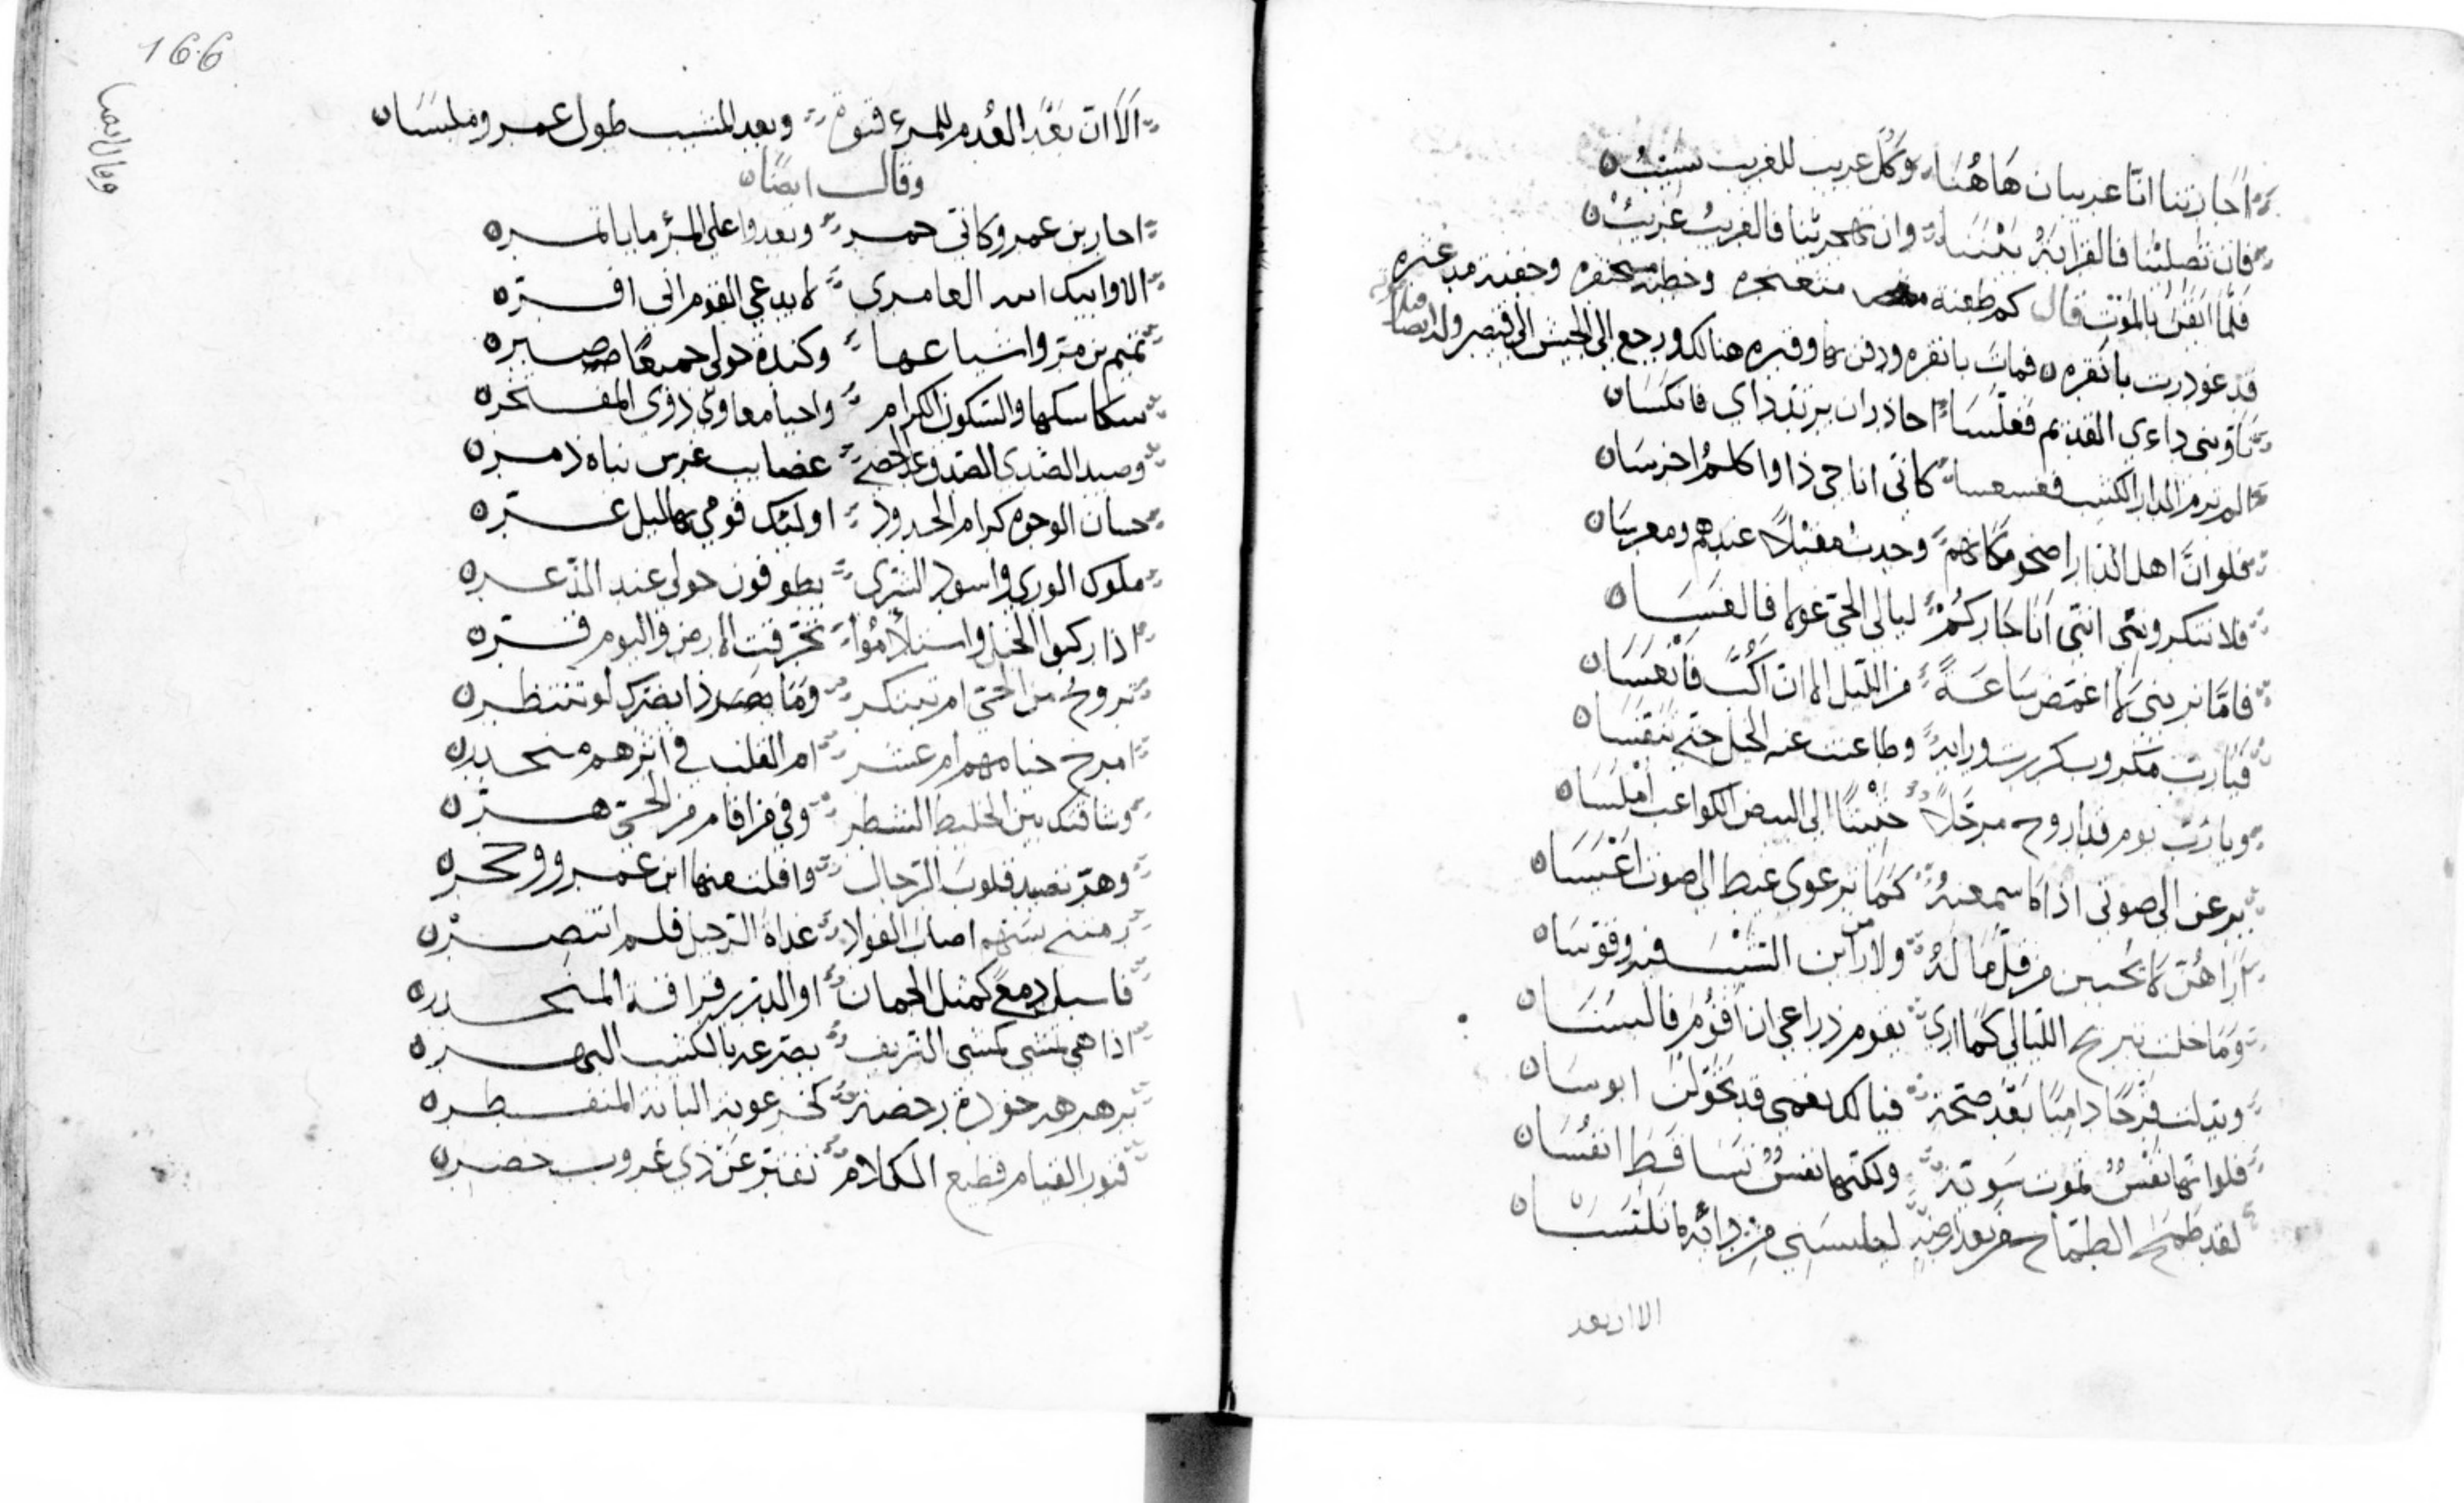 اجارتنا انّا غريبان هَاهُنَا وَكلّ غريب للغريب نسيبُ
فان تصلينا فالقرابَةُ بَيْنَنَا وان تهجرينا فالغريبُ غريبُ
فلمّا ايقن بالموت قال كم طعنة مثعنجره وخطبة مسحنفره وجفنة مدعثره
قد غودرت بانقره فمات بانقره ودفن بها وقبره هنالك ورجع الى الجيش الى قيصر وله ايضا
تأوّبنى داءى القديم فغلّسَا احاذر ان يرتد داى فانكسَا
الم ترم الدار الكثيب فعسعسا كانّى اناجى ذا واكلمُ اخرسَا
فلو انّ اهل الدار اضحو مكانهم وجدت مقيلاً عندهم ومعرسَا
فلا تنكرونى انّنى انا جاركُمْ ليالى الحى غولا فالعسَا
فامّا ترينى لا اغمض سَاعَةً من الليل الا ان اكُبّ فانعسَا
فيارب مكروب كررت وراءه وطاعنت عنه الخيل حتى تنفسَا
ويا ربّ يوم قد اروح مرجّلاً حبيبًا الى البيض الكواعب املسَا
يرعن الى صوتى اذا ما سمعنهُ كما يرعوى عيط الى صوت اعْيَسَا
اراهُنّ لا يحببن من قلّ مالهُ ولا من راين الشيب فيه وقوّسَا
وما خلت تبريح الليالى كما ارى يقوم ذراعى ان اقُوم فالبسَا
وبدلت قرحًا داميًا بعد صحّة فيالك نعمى قد تحوّلن ابوسَا
فلو انّها نفسٌ تموت سَوِيّة ولكنّها نفسٌ تسَاقط انفُسَا
لقد طمَحَ الطمّاح من بعد ارضه ليلبسَنى من دائه ما تلبّسَا
الا ان بعد
الَا ان بَعْد العُدم للمرء قنوة وبعد المشيب طول عمر وملبسَا
وقال ايضًا
احار بن عمرو كانّى خمر ويعدوا على المرء ما ياتمر
الا وابيك ابنه العامرى لا يدعى القوم انى افرّ
تميم بن مرّ واشياعها وكندة حولى جميعًا صبر
سكاسكها والسكون الكرام واحيا معاوى ذوى المفتخر
حسان الوجوه كرام الجدود اولئك قومى بهاليل غرّ
ملوك الورى واسود الشرى يطوفون حولى عند الذّعر
اذا ركبوا الخيل واستلأمُوا تحرّقت الارض واليوم قرّ
تروح من الحىّ ام تبتكر ومَا يضرّك لو تنتظر
امرخ خيامهم ام عشر ام القلب فى اثرهم منحدر
وشاقتك بين الخليط الشطر وفى من اقام من الحىّ هرّ
وهرّ تصيد قلوب الرّجال وافلت منها ابن عمرو وحجر
رمتنى بسَهم اصاب الفواد غداة الرّحيل فلم انتصر
فاسبل دمعى كمثل الجمان او الدرّ رقراقه المنحدر
اذا هى تمشى كمشى النزيف يصرعه بالكثيب البهر
برهرهه خودة رخصة كخرعوبة البانة المنفطر
فتور القيام قطيع الكلام تفترّ عن ذى غروب خضر
وقال ايضا
166